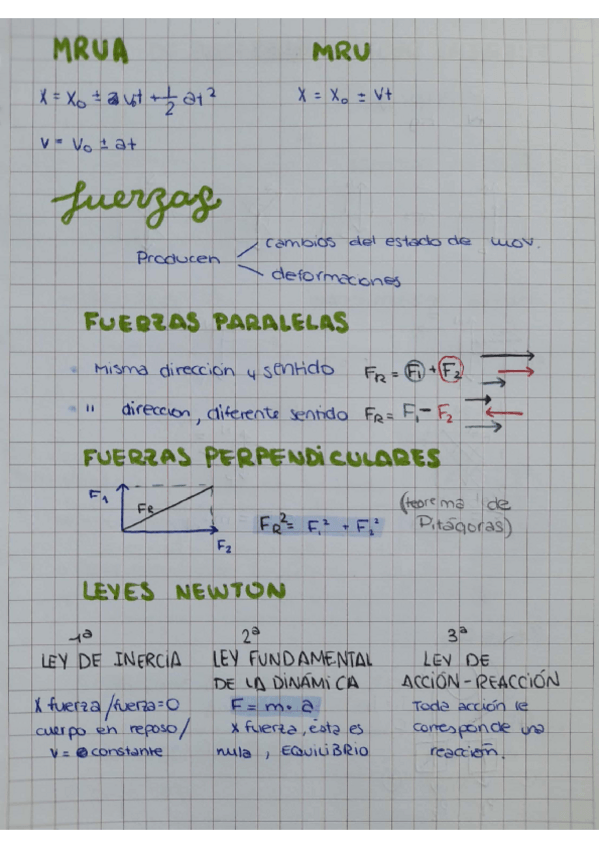 MRUA MRU
X = X₀ ± v₀t + 1/2 at² X = X₀ ± vt
v = v₀ ± at
fuerzas
Producen
cambios del estado de mov.
deformaciones
FUERZAS PARALELAS
Misma dirección y sentido F_R = F₁ + F₂
" dirección, diferente sentido F_R = F₁ - F₂
FUERZAS PERPENDICULARES
F₁
F_R
F₂
F_R² = F₁² + F₂²
(teorema de
Pitágoras)
LEYES NEWTON
1ª
LEY DE INERCIA
X fuerza/fuerza=0
cuerpo en reposo/
v = constante
2ª
LEY FUNDAMENTAL
DE LA DINÁMICA
F = m · a
X fuerza, esta es
nula, EQUILIBRIO
3ª
LEY DE
ACCIÓN-REACCIÓN
Toda acción le
corresponde una
reacción.